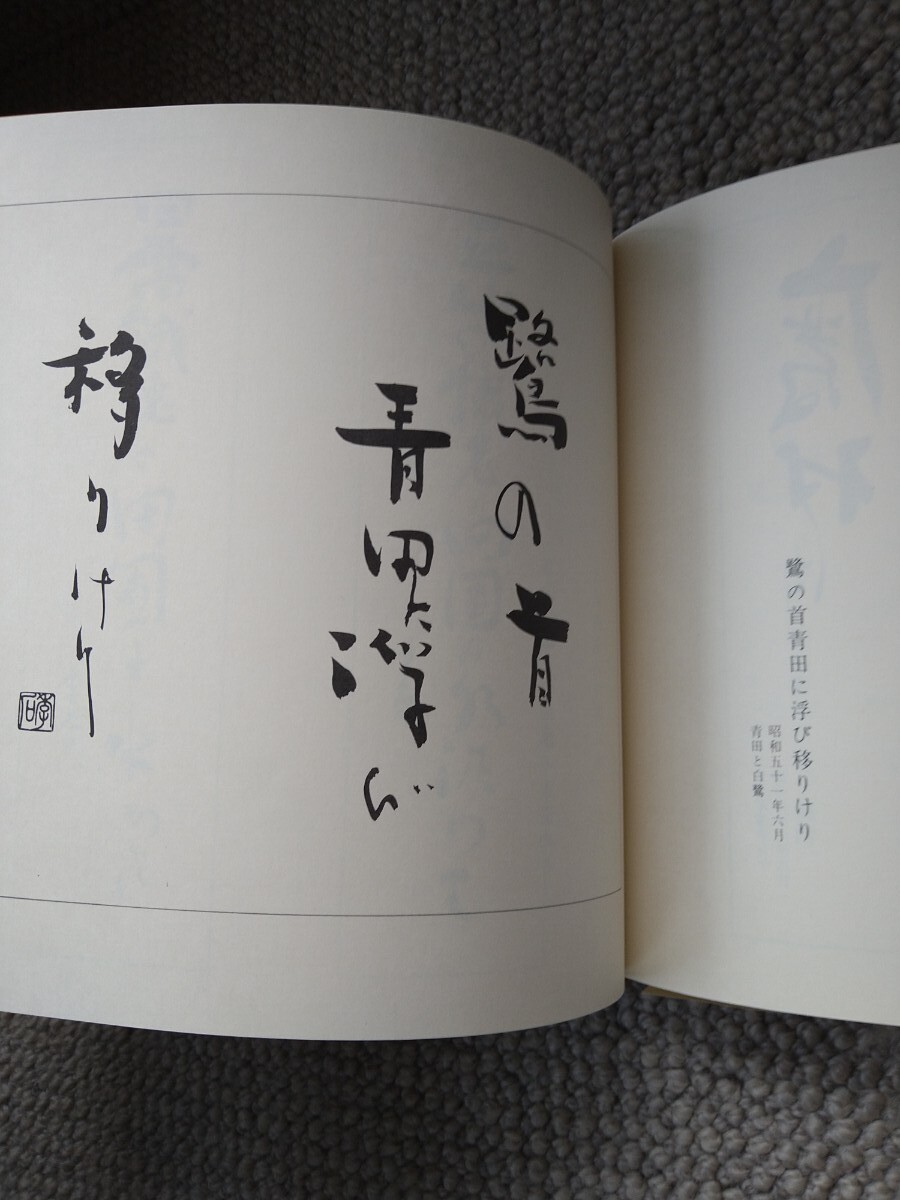 鷺の首青田に浮び移りけり
昭和五十一年六月
青田と白鷺
鷺の首
青田に浮び
移りけり